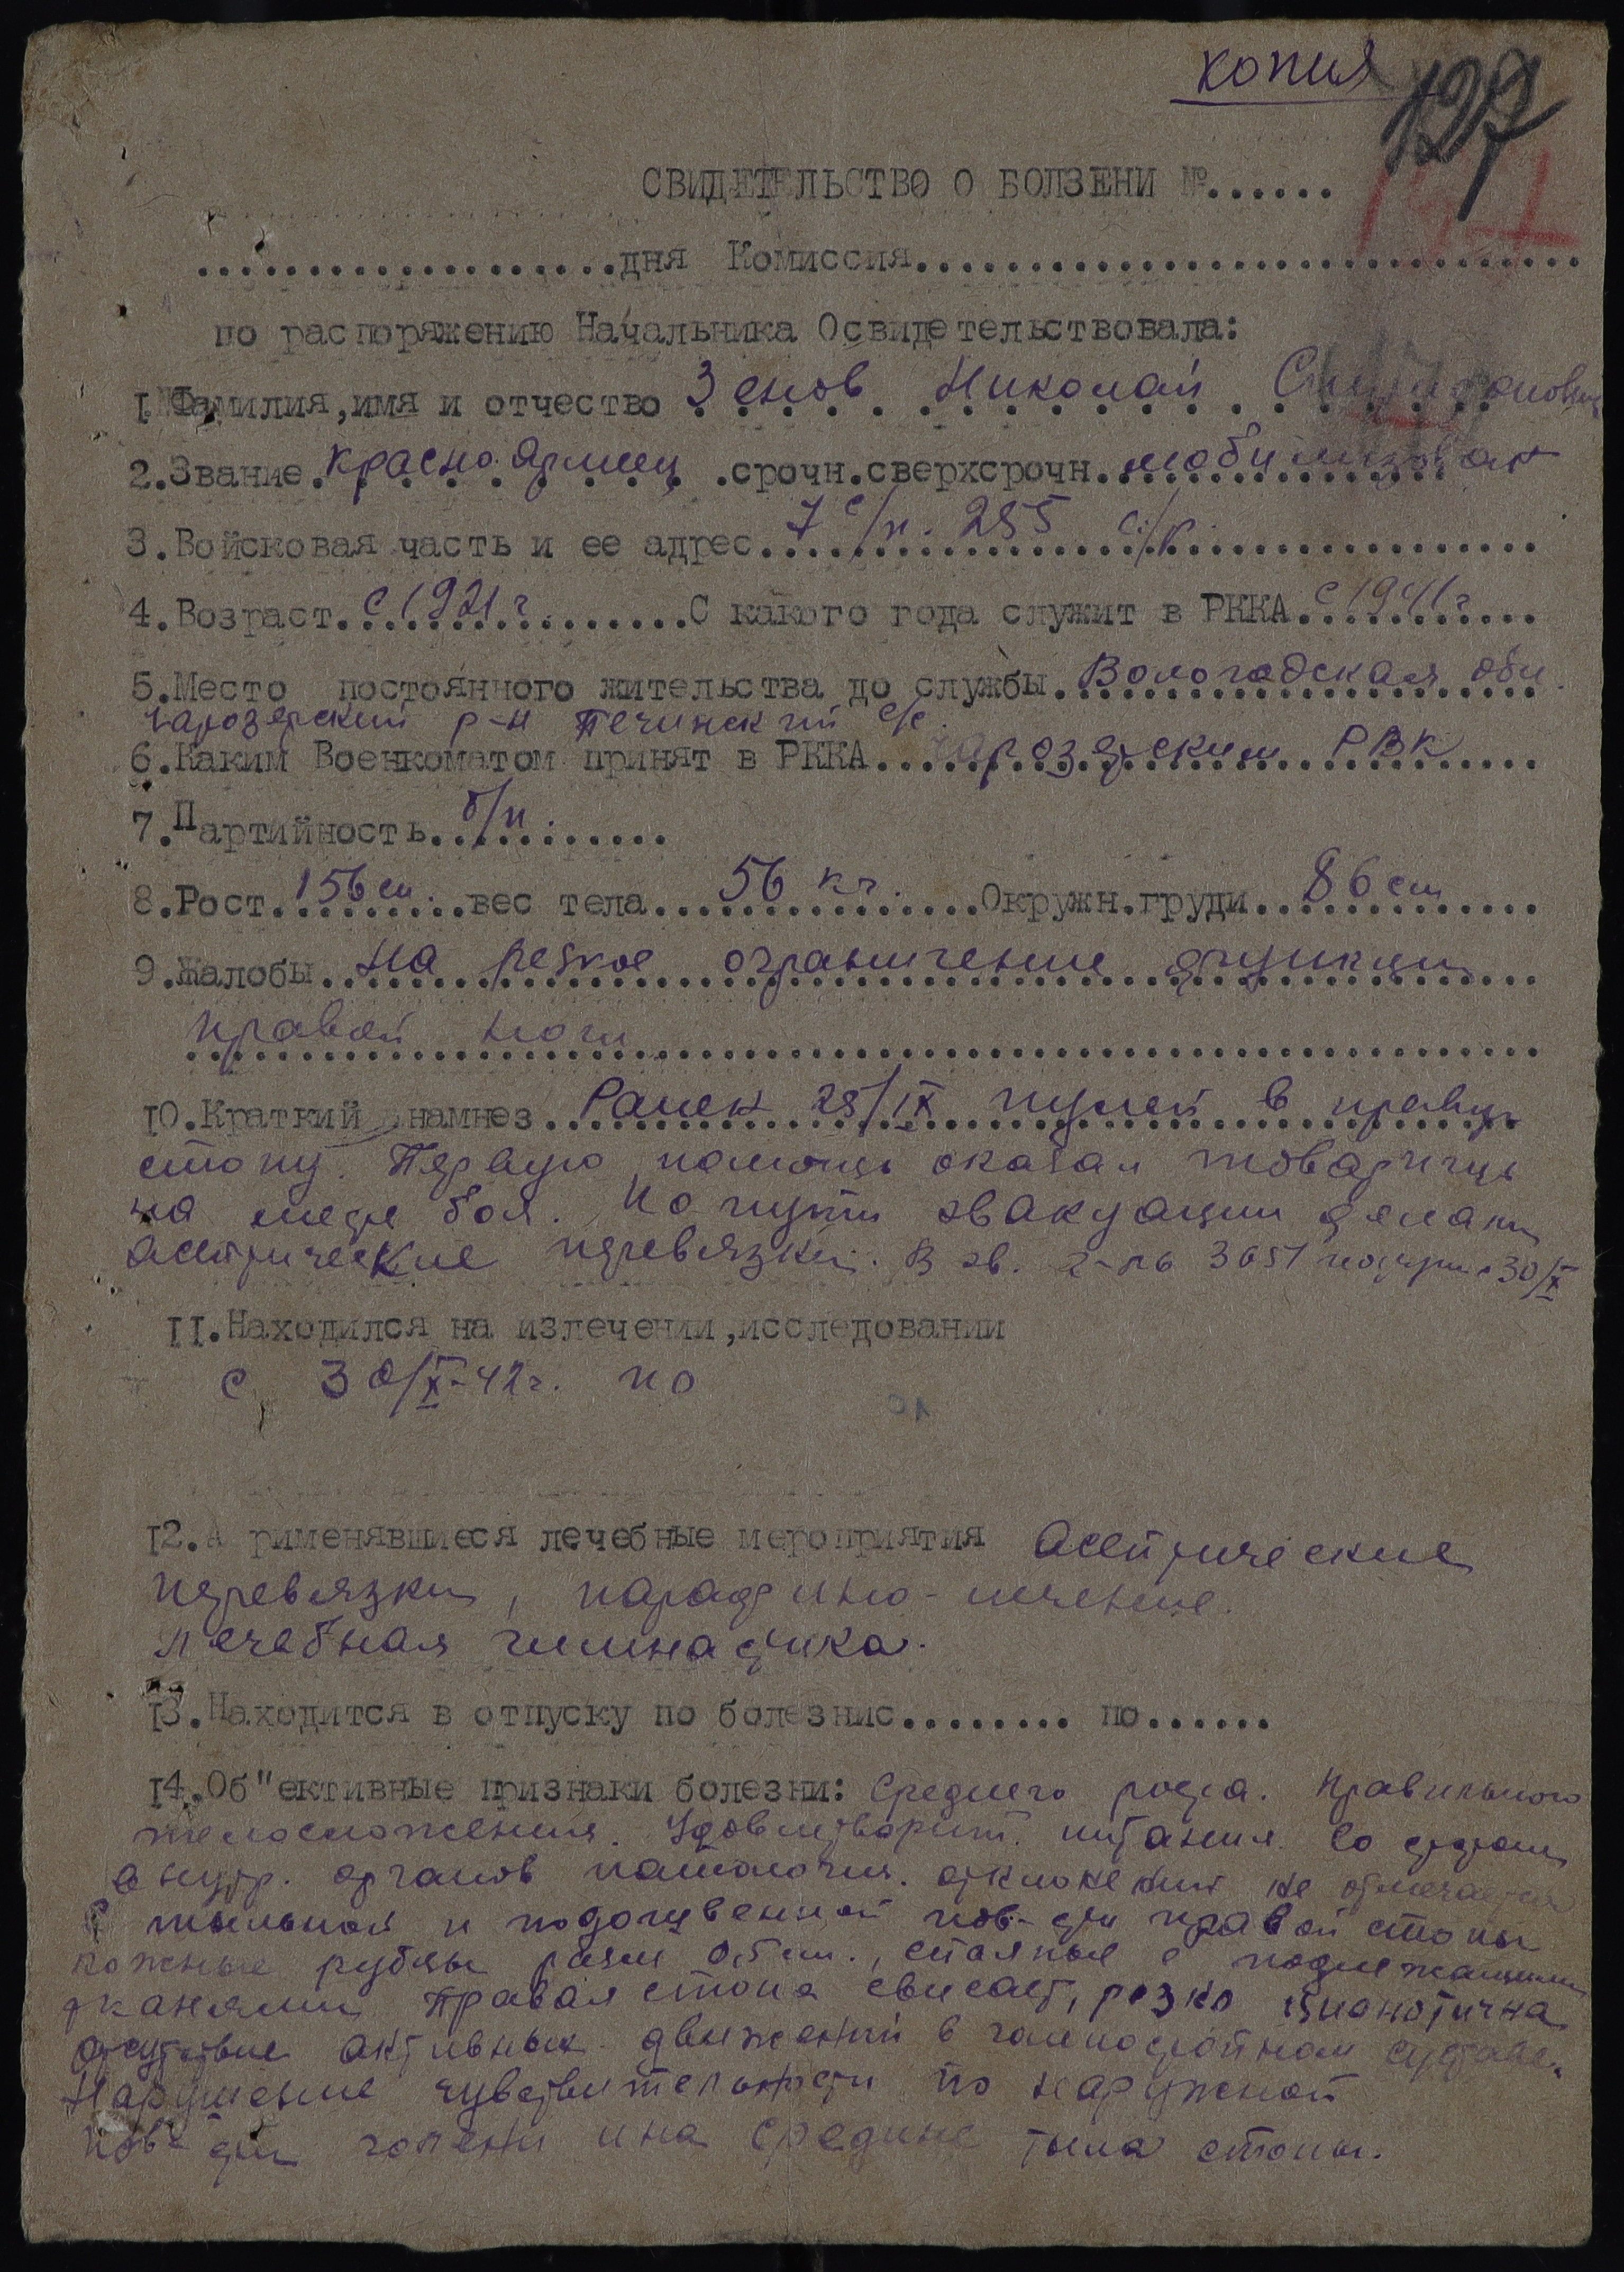 копия
127
СВИДЕТЕЛЬСТВО О БОЛЗЕНИ №......
...................дня Комиссия..............................
по распоряжению Начальника Освидетельствовала:
I.Фамилия,имя и отчество Зенов Николай
2.Звание красноармеец .срочн.сверхсрочн. мобилизован
3.Войсковая часть и ее адрес 7 с/п. 255 с/р.
4.Возраст с 1921 г. С какого года служит в РККА с 1941 г
5.Место постоянного жительства до службы Вологодская обл.
Чарозерский р-н Печинский с/с.
6.Каким Военкоматом принят в РККА Чарозерским РВК
7.Партийность б/п.
8.Рост 156 см. вес тела 56 кг. Окружн.груди 86 см
9.Жалобы на резкое ограничение функции
правой ноги
IO.Краткий намнез Ранен 28/IX пулей в правую
стопу. Первую помощь оказал товарищ
на месте боя. По пути эвакуации делали
асептические перевязки. В эв. г-ль 3651 30/X
II.Находился на излечении,исследовании
с 30/X-42г. по
I2.А рименявшиеся лечебные мероприятия Асептические
перевязки, парафино-лечение.
Лечебная гимнастика.
I3.Находится в отпуску по болезнис........ по......
I4.Об"ективные признаки болезни: Среднего роста. Правильного
телосложения. Удовлетворит. питания. Со стороны
внутр. органов патологич. отклонений не отмечается
С тыльной и подошвенной пов-сти правой стопы
кожные рубцы разм 0,5 см., спаянные с подлежащими
тканями Правая стопа свисает, резко цианотична
отсутствие активных движений в голеностопном суставе.
Нарушение чувствительности по наружной
пов-сти голени и на средине тыла стопы.